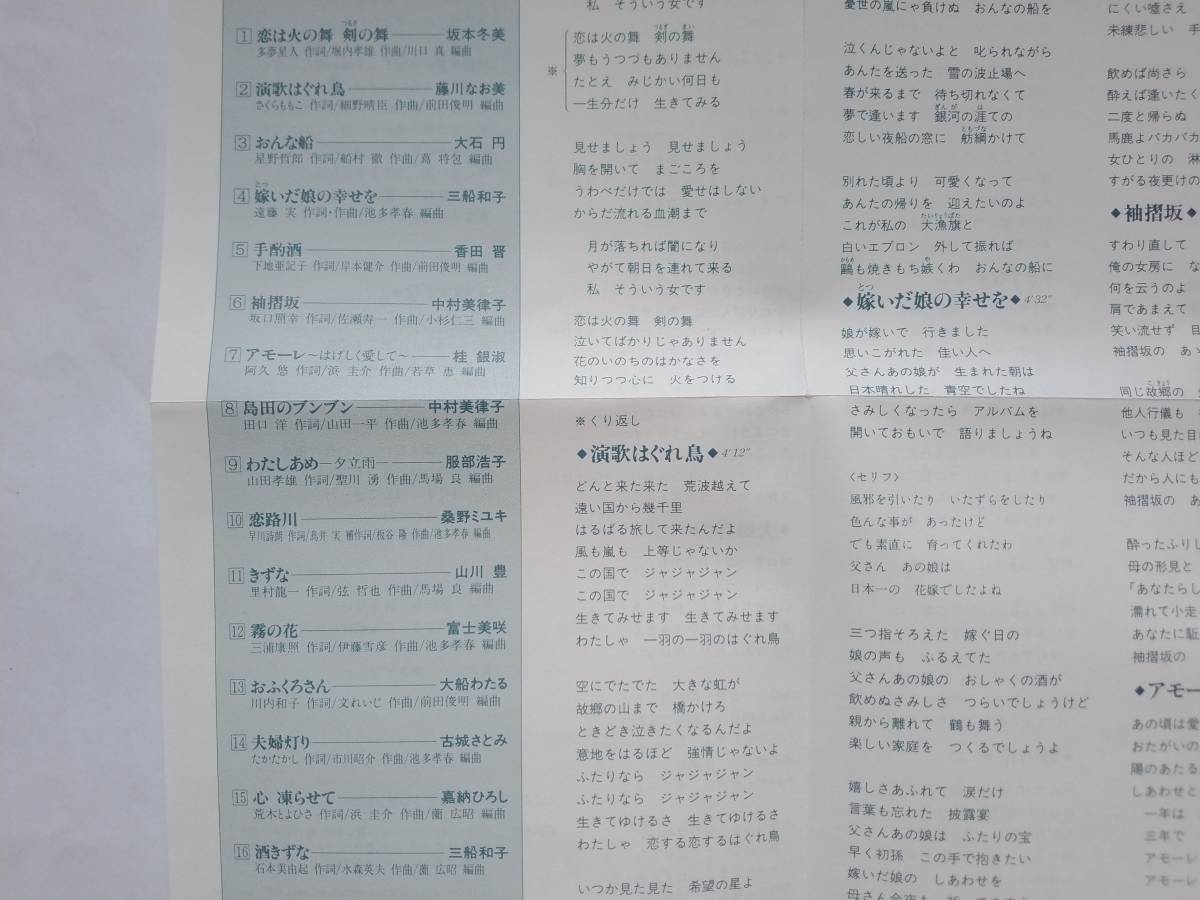 1 恋は火の舞 剣の舞 坂本冬美
つるぎ
多夢星人 作詞/堀内孝雄 作曲/川口 真 編曲
2 演歌はぐれ鳥 藤川なお美
さくらももこ 作詞/細野晴臣 作曲/前田俊明 編曲
3 おんな船 大石 円
星野哲郎 作詞/船村 徹 作曲/蔦 将包 編曲
4 嫁いだ娘の幸せを 三船和子
とつ
遠藤 実 作詞・作曲/池多孝春 編曲
5 手酌酒 香田 晋
下地亜記子 作詞/岸本健介 作曲/前田俊明 編曲
6 袖摺坂 中村美律子
坂口照幸 作詞/佐瀬寿一 作曲/小杉仁三 編曲
7 アモーレ〜はげしく愛して〜 桂 銀淑
阿久 悠 作詞/浜 圭介 作曲/若草 恵 編曲
8 島田のブンブン 中村美律子
田口 洋 作詞/山田一平 作曲/池多孝春 編曲
9 わたしあめ―夕立雨― 服部浩子
山田孝雄 作詞/聖川 湧 作曲/馬場 良 編曲
10 恋路川 桑野ミユキ
早川詩朗 作詞/鳥井 実 補作詞/板谷 隆 作曲/池多孝春 編曲
11 きずな 山川 豊
里村龍一 作詞/弦 哲也 作曲/馬場 良 編曲
12 霧の花 富士美咲
三浦康照 作詞/伊藤雪彦 作曲/池多孝春 編曲
13 おふくろさん 大船わたる
川内和子 作詞/文れいじ 作曲/前田俊明 編曲
14 夫婦灯り 古城さとみ
たかたかし 作詞/市川昭介 作曲/池多孝春 編曲
15 心 凍らせて 嘉納ひろし
荒木とよひさ 作詞/浜 圭介 作曲/薗 広昭 編曲
16 酒きずな 三船和子
石本美由起 作詞/水森英夫 作曲/薗 広昭 編曲
私 そういう女です
※ 恋は火の舞 剣の舞
つるぎ まい
夢もうつづもありません
たとえ みじかい何日も
一生分だけ 生きてみる
見せましょう 見せましょう
胸を開いて まごころを
うわべだけでは 愛せはしない
からだ流れる血潮まで
月が落ちれば闇になり
やがて朝日を連れて来る
私 そういう女です
恋は火の舞 剣の舞
泣いてばかりじゃありません
花のいのちのはかなさを
知りつつ心に 火をつける
※くり返し
◆演歌はぐれ鳥◆4'12"
どんと来た来た 荒波越えて
遠い国から幾千里
はるばる旅して来たんだよ
風も嵐も 上等じゃないか
この国で ジャジャジャン
この国で ジャジャジャン
生きてみせます 生きてみせます
わたしゃ 一羽の一羽のはぐれ鳥
空にでたでた 大きな虹が
故郷の山まで 橋かけろ
ときどき泣きたくなるんだよ
意地をはるほど 強情じゃないよ
ふたりなら ジャジャジャン
ふたりなら ジャジャジャン
生きてゆけるさ 生きてゆけるさ
わたしゃ 恋する恋するはぐれ鳥
いつか見た見た 希望の星よ
憂世の嵐にゃ負けぬ おんなの船を
泣くんじゃないよと 叱られながら
あんたを送った 雪の波止場へ
春が来るまで 待ち切れなくて
夢で逢います 銀河の涯ての
ぎんが は
恋しい夜船の窓に 舫綱かけて
ともづな
別れた頃より 可愛くなって
あんたの帰りを 迎えたいのよ
これが私の 大漁旗と
たいりょうばた
白いエプロン 外して振れば
鷗も焼きもち嫉くわ おんなの船に
かもめ や
◆嫁いだ娘の幸せを◆4'32"
とつ
娘が嫁いで 行きました
思いこがれた 佳い人へ
父さんあの娘が 生まれた朝は
日本晴れした 青空でしたね
さみしくなったら アルバムを
開いておもいで 語りましょうね
〈セリフ〉
風邪を引いたり いたずらをしたり
色んな事が あったけど
でも素直に 育ってくれたわ
父さん あの娘は
日本一の 花嫁でしたよね
三つ指そろえた 嫁ぐ日の
娘の声も ふるえてた
父さんあの娘の おしゃくの酒が
飲めぬさみしさ つらいでしょうけど
親から離れて 鶴も舞う
楽しい家庭を つくるでしょうよ
嬉しさあふれて 涙だけ
言葉も忘れた 披露宴
父さんあの娘は ふたりの宝
早く初孫 この手で抱きたい
嫁いだ娘の しあわせを
にくい嘘さえ
未練悲しい 手
飲めば尚さら
酔えば逢いたく
二度と帰らぬ
馬鹿よバカバカ
女ひとりの 淋
すがる夜更けの
◆袖摺坂◆
すわり直して
俺の女房に な
何を云うのよ
肩であまえて
笑い流せず 目
袖摺坂の あゝ
同じ故郷の
こきょう
他人行儀も
いつも見た目
そんな人ほど
だから人にも
袖摺坂の あ
酔ったふりし
母の形見と
「あなたらし
濡れて小走
あなたに駈
袖摺坂の
◆アモー
あの頃は愛
おたがいの
陽のあたる
しあわせと
一年は
三年で
アモーレ
アモーレ